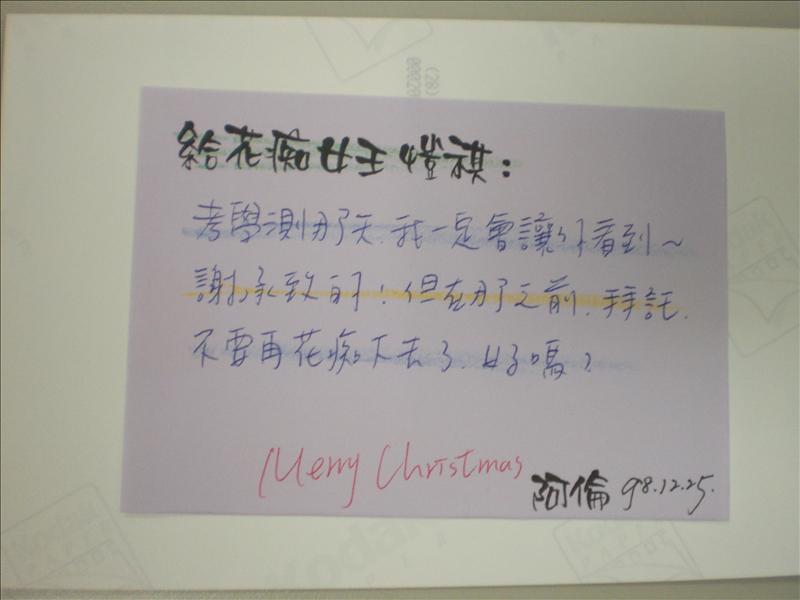 (28)
給花痴女王愷祺：
考學測那天，我一定會讓你看到～
謝承致的！但在那之前，拜託，
不要再花痴下去了，好嗎？
Merry Christmas
阿倫 98.12.25.
Kodak